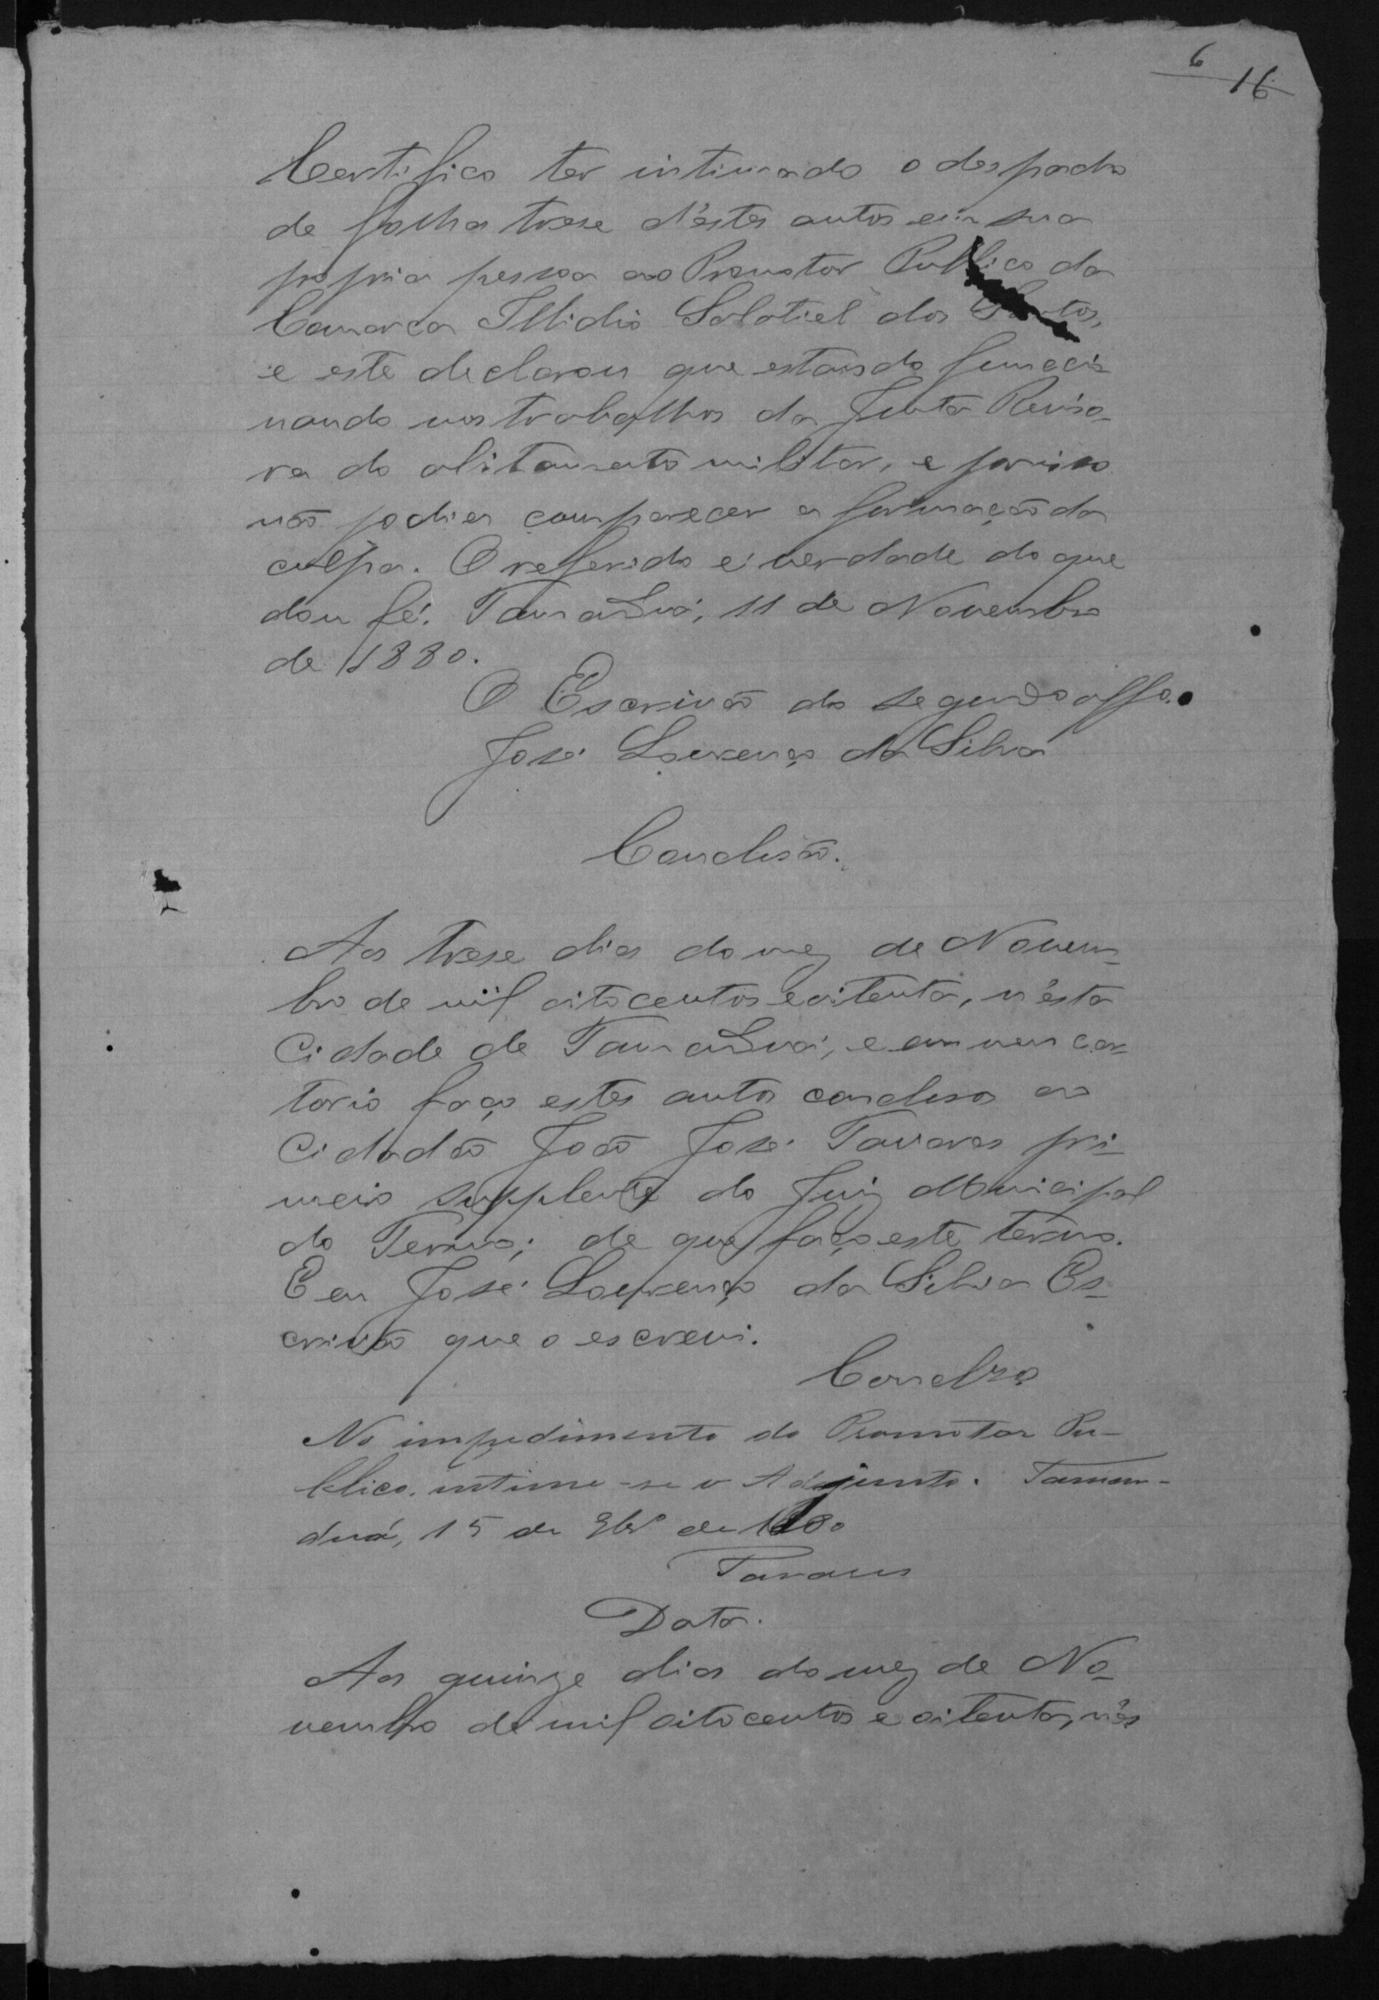 6
16
Certifico ter intimado o despacho
de folha trese d'estes autos em sua
propria pessoa ao Promotor Publico da
Comarca Illidio Salatiel dos Santos,
e este declarou que estando funccio
nando nos trabalhos da Junta Reviso-
ra do alistamento militar, e por isso
não podia comparecer a formação da
culpa. O referido é verdade do que
dou fé. Tamanduá, 11 de Novembro
de 1880.
O Escrivão do segundo offo.
José Lourenço da Silva
Conclusão.
Aos trese dias do mez de Novem-
bro de mil oitocentos e oitenta, n'esta
Cidade de Tamanduá, e em meu car-
torio faço estes autos conclusos ao
Cidadão João José Tavares pri-
meiro supplente do Juiz Municipal
do Termo; de que faço este termo.
E eu José Lourenço da Silva Es-
crivão que o escrevi.
Conclso
No impedimento do Promotor Pu-
blico, intime-se o Adjunto. Taman-
duá, 15 de 9br.o de 1880
Tavares
Data.
Aos quinze dias do mez de No-
vembro de mil oitocentos e oitenta, n'es